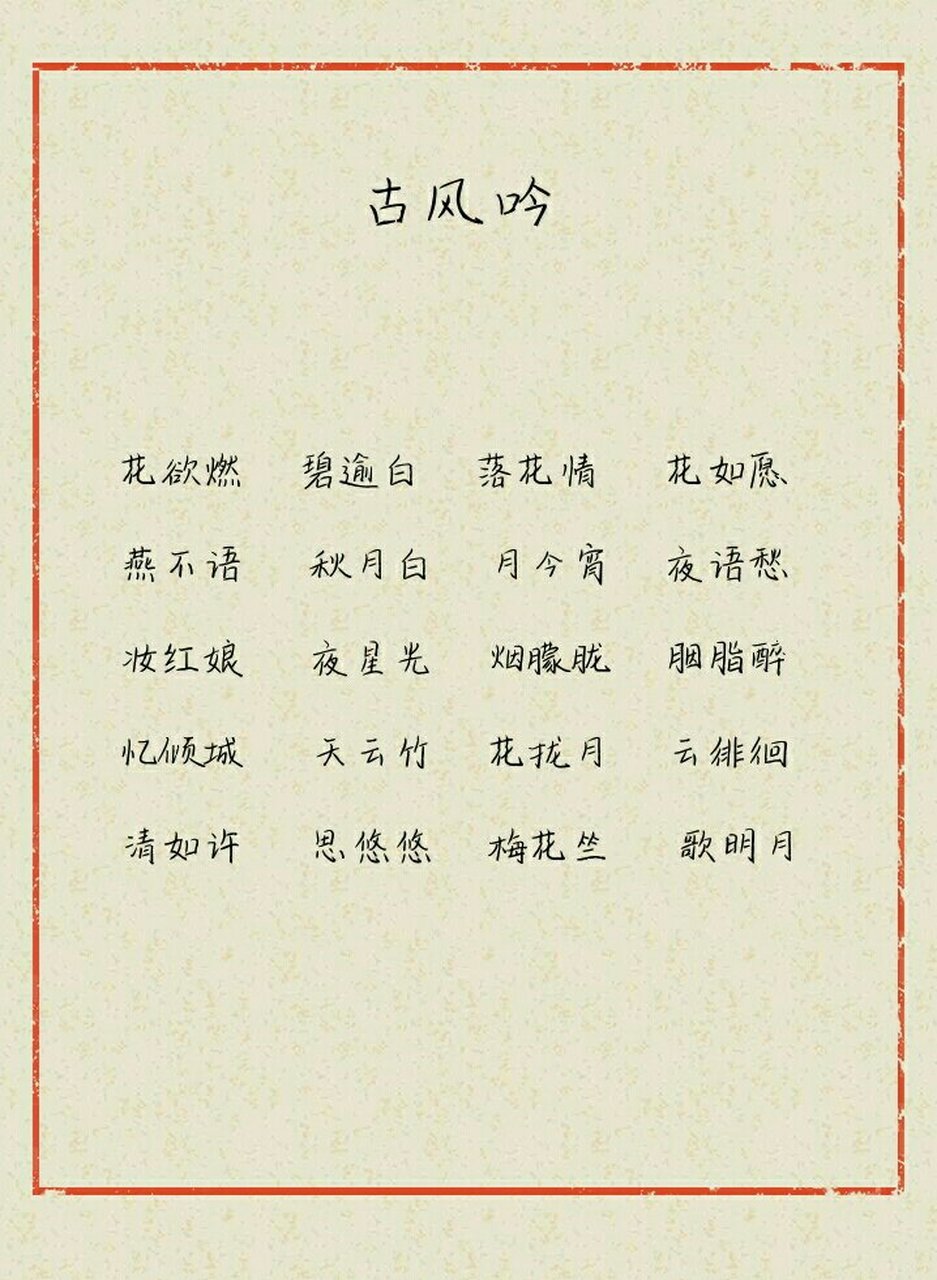 古风吟
花欲燃 碧逾白 落花情 花如愿
燕不语 秋月白 月今宵 夜语愁
妆红娘 夜星光 烟朦胧 胭脂醉
忆倾城 天云竹 花拢月 云徘徊
清如许 思悠悠 梅花竺 歌明月